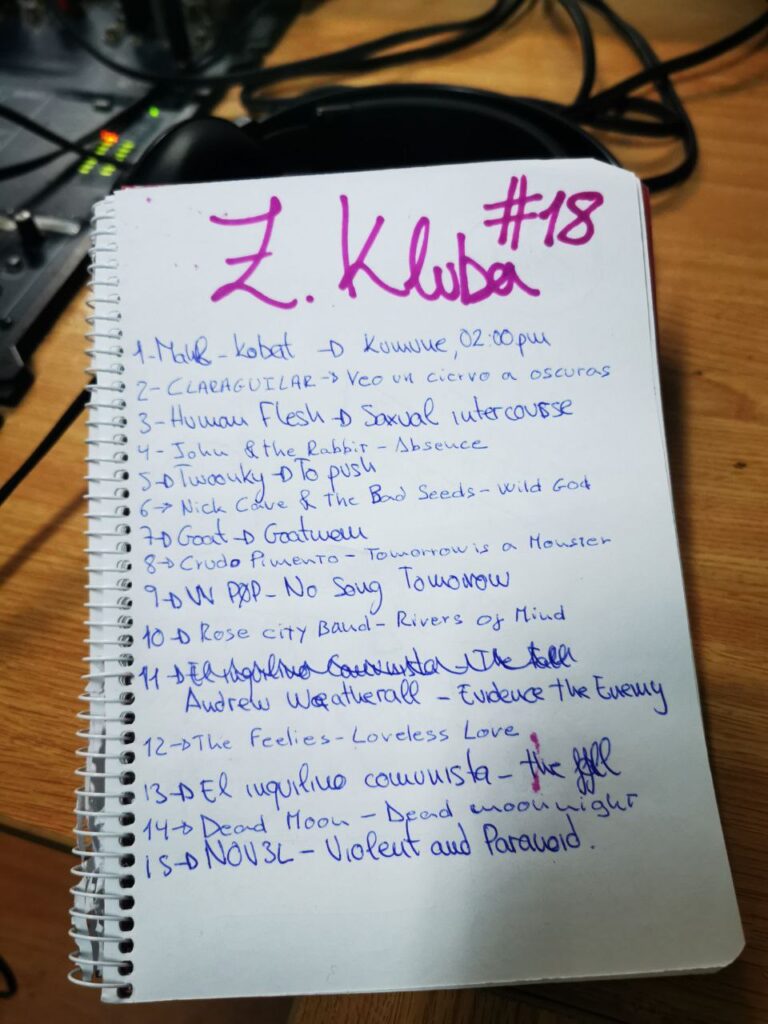 #18
Z. Kluba
1- - Kobat → Kumvne, 02:00pm
2- CLARAGUILAR → Veo un ciervo a oscuras
3- Human Flesh → Saxual intercourse
4- John & the Rabbit - Absence
5→ Twoonky → To push
6→ Nick Cave & The Bad Seeds - Wild God
7→ Goat → Goatwom
8→ Crudo Pimento - Tomorrow is a Monster
9→ VV PØP - No Song Tomorrow
10→ Rose city Band - Rivers of Mind
11→ El inquilino Comunista - The fall
Andrew Weatherall - Evidence the Enemy
12→ The Feelies - Loveless Love
13→ El inquilino comunista - the fall
14→ Dead Moon - Dead moon night
15→ NOV3L - Violent and Paranoid.